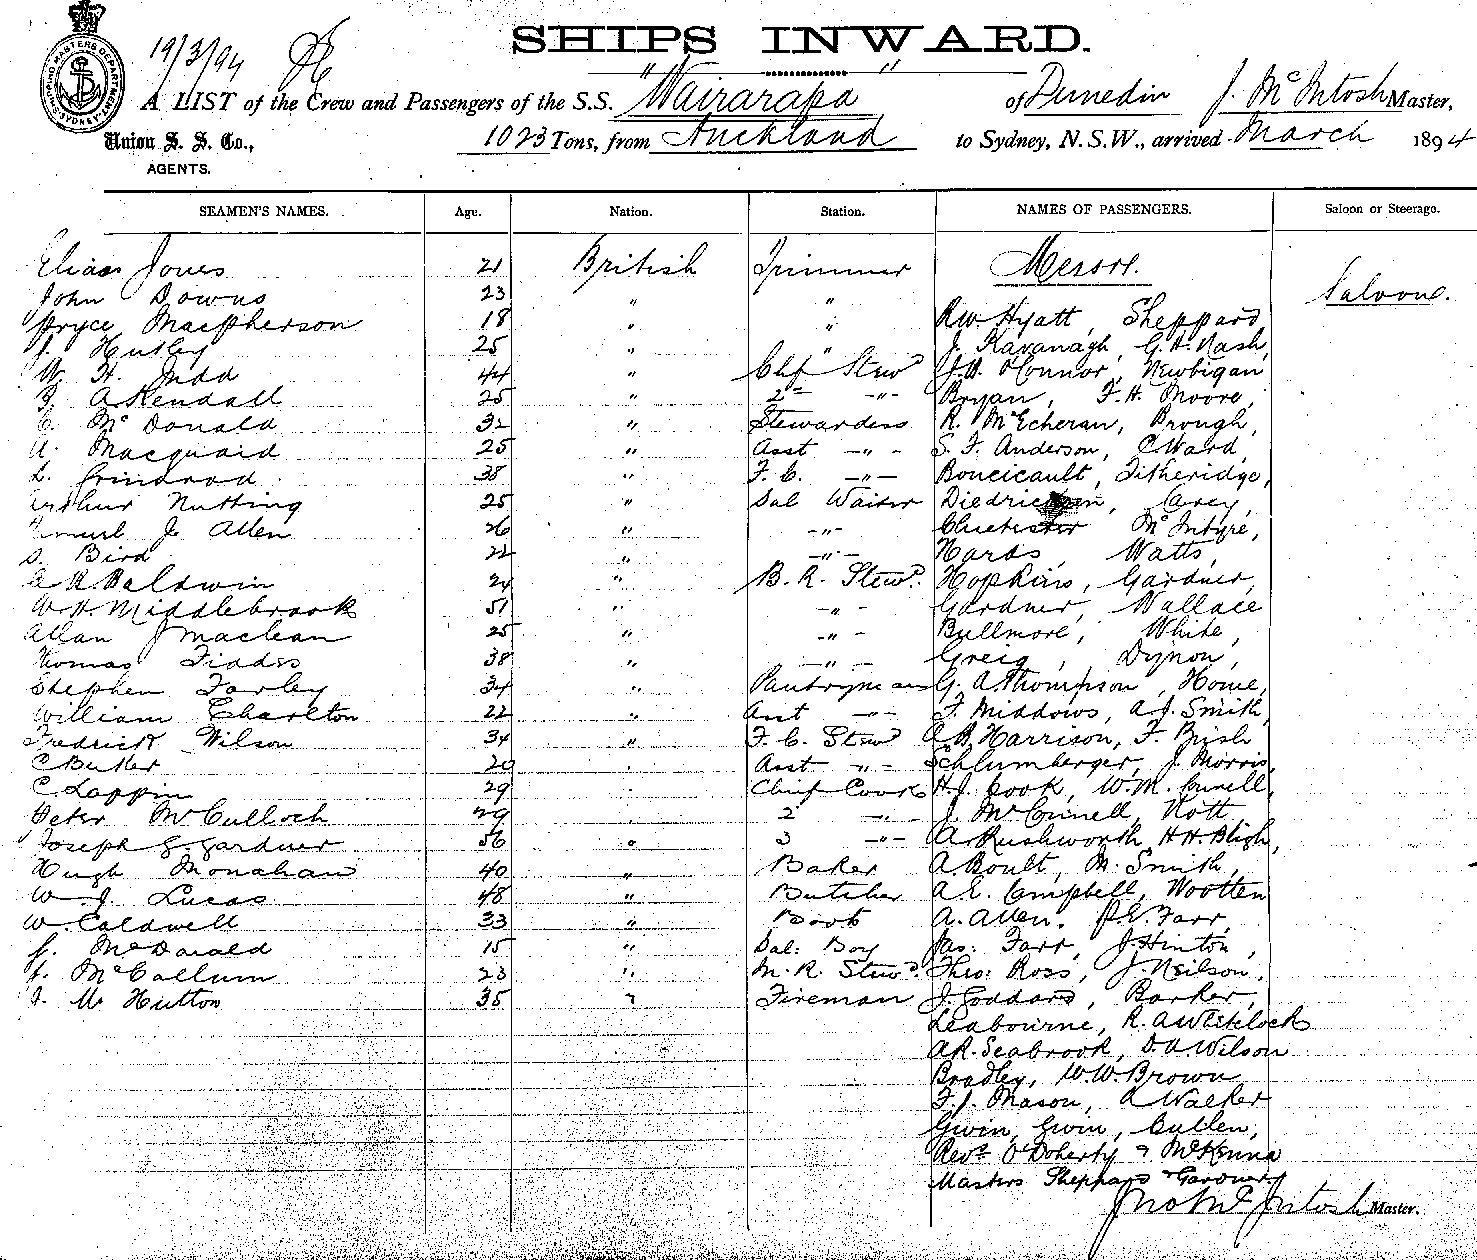 SHIPS INWARD.
19/3/94
A LIST of the Crew and Passengers of the S.S. "Wairarapa" of Dunedin J. McIntosh Master,
Union S. S. Co., 1023 Tons, from Auckland to Sydney, N.S.W., arrived March 1894
AGENTS.
SEAMEN'S NAMES. Age. Nation. Station. NAMES OF PASSENGERS. Saloon or Steerage.
Elias Jones 21 British Trimmer Messrs.
John Downs 23 " " Saloone.
Pryce MacPherson 18 " " R.W. Hyatt, Sheppard
J. Hutley 25 " " J. Kavanagh, G.A. Nash,
W. H. Judd 44 " Chf Stewd J.A. O'Connor, Newbigan
A Kendall 25 " 2nd -"- Bryan, F.H. Moore,
C. McDonald 32 " Stewardess R. McEcheran, Brough,
A. Macquaid 25 " Asst -"- S. F. Anderson, C Ward,
L. Grindrod 38 " F. C. -"- Boucicault, Titheridge,
Arthur Nutting 25 " Sal Waiter Diedrichsen, Carey,
J. Allen 26 " -"- Chichester McIntyre,
S. Bird 22 " -"- Nards, Watts,
R Baldwin 24 " B. R. Stewd. Hopkins, Gardner,
W.H. Middlebrook 51 " -"- Gardner, Wallace
Allan J Maclean 25 " -"- Bullmore, White,
Thomas Fiddes 38 " -"- Greig, Dynon,
Stephen Farley 34 " Pantryman G. A. Thompson, Howe,
William Charlton 22 " Asst -"- F. Middows, A.J. Smith,
Fredrick Wilson 34 " F. C. Stewd A.B. Harrison, F. Brish
C Butler 20 . Asst -"- Schlumberger, J. Morris,
C Lappin 29 . Chief Cook H.J. Cook, W.M. Cunell,
Peter McCulloch 29 . 2 -"- J. McConnell, Nott,
Joseph G. Gardner 56 " 3 -"- A Rushworth, H.H. Bligh,
Hugh Monahan 40 " Baker A Boult, M. Smith,
W. J. Lucas 48 " Butcher A.E. Campbell, Wootten
W. Caldwell 33 " Boots A. Allen. P.E. Farr,
J. McDonald 15 " Sal: Boy Jas: Farr, J Hinton,
J. McCallum 23 " M. R. Stewd. Theo: Ross, J. Neilson,
J. W Hutton 35 " Fireman J. Goddard, Barker,
Leabourne, R. A Whitelock
A.R. Seabrook, D.A. Wilson
Bradley, W.W. Brown
F.J. Mason, A Walker
Gwin, Gwin, Cullen,
Revds O'Doherty & McKenna
Masters Sheppard & Gardner
Jno McIntosh Master.